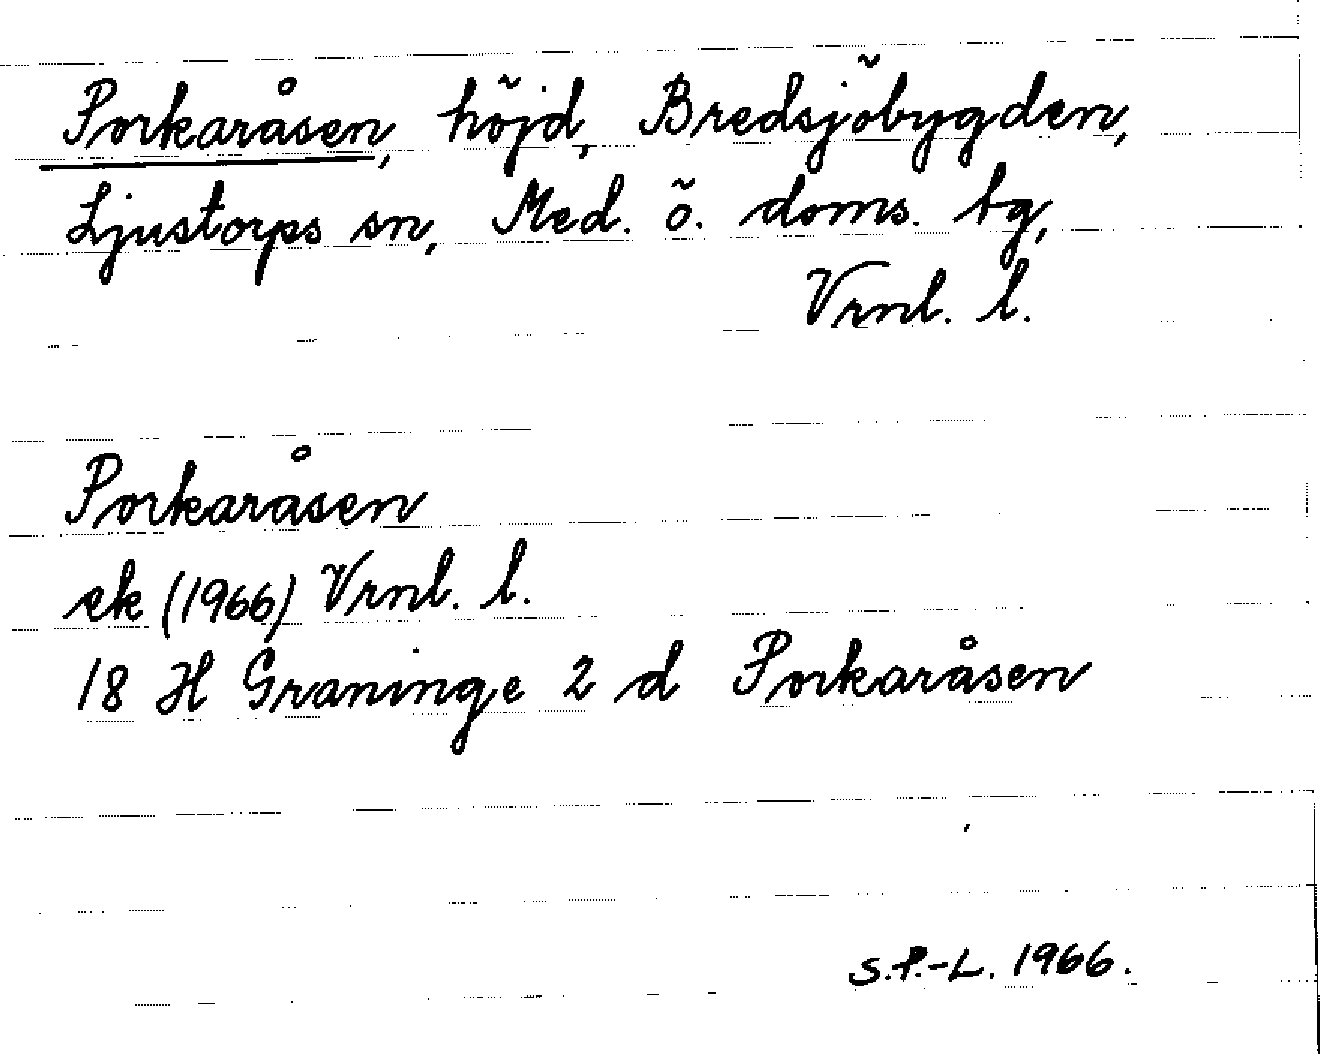 Porkaråsen, höjd, Bredsjöbygden,
Ljustorps sn, Med. ö. doms. tg,
Vrnl. l.
Porkaråsen
ek (1966) Vrnl. l.
18 H Graninge 2 d Porkaråsen
S.P.-L. 1966.